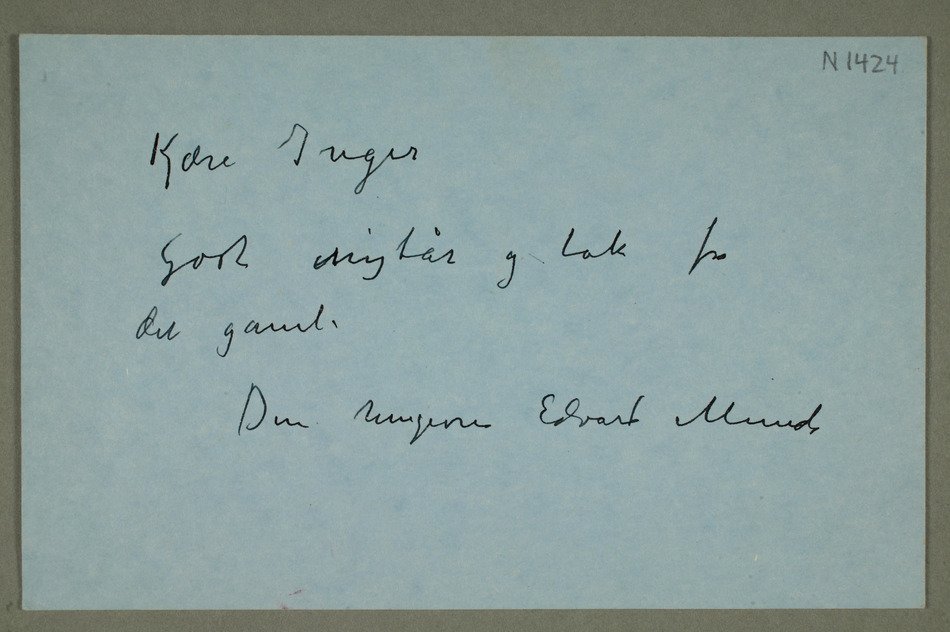 N 1424
Kære Inger
Godt nyttår og tak for
det gamle
Din hengivne Edvard Munch